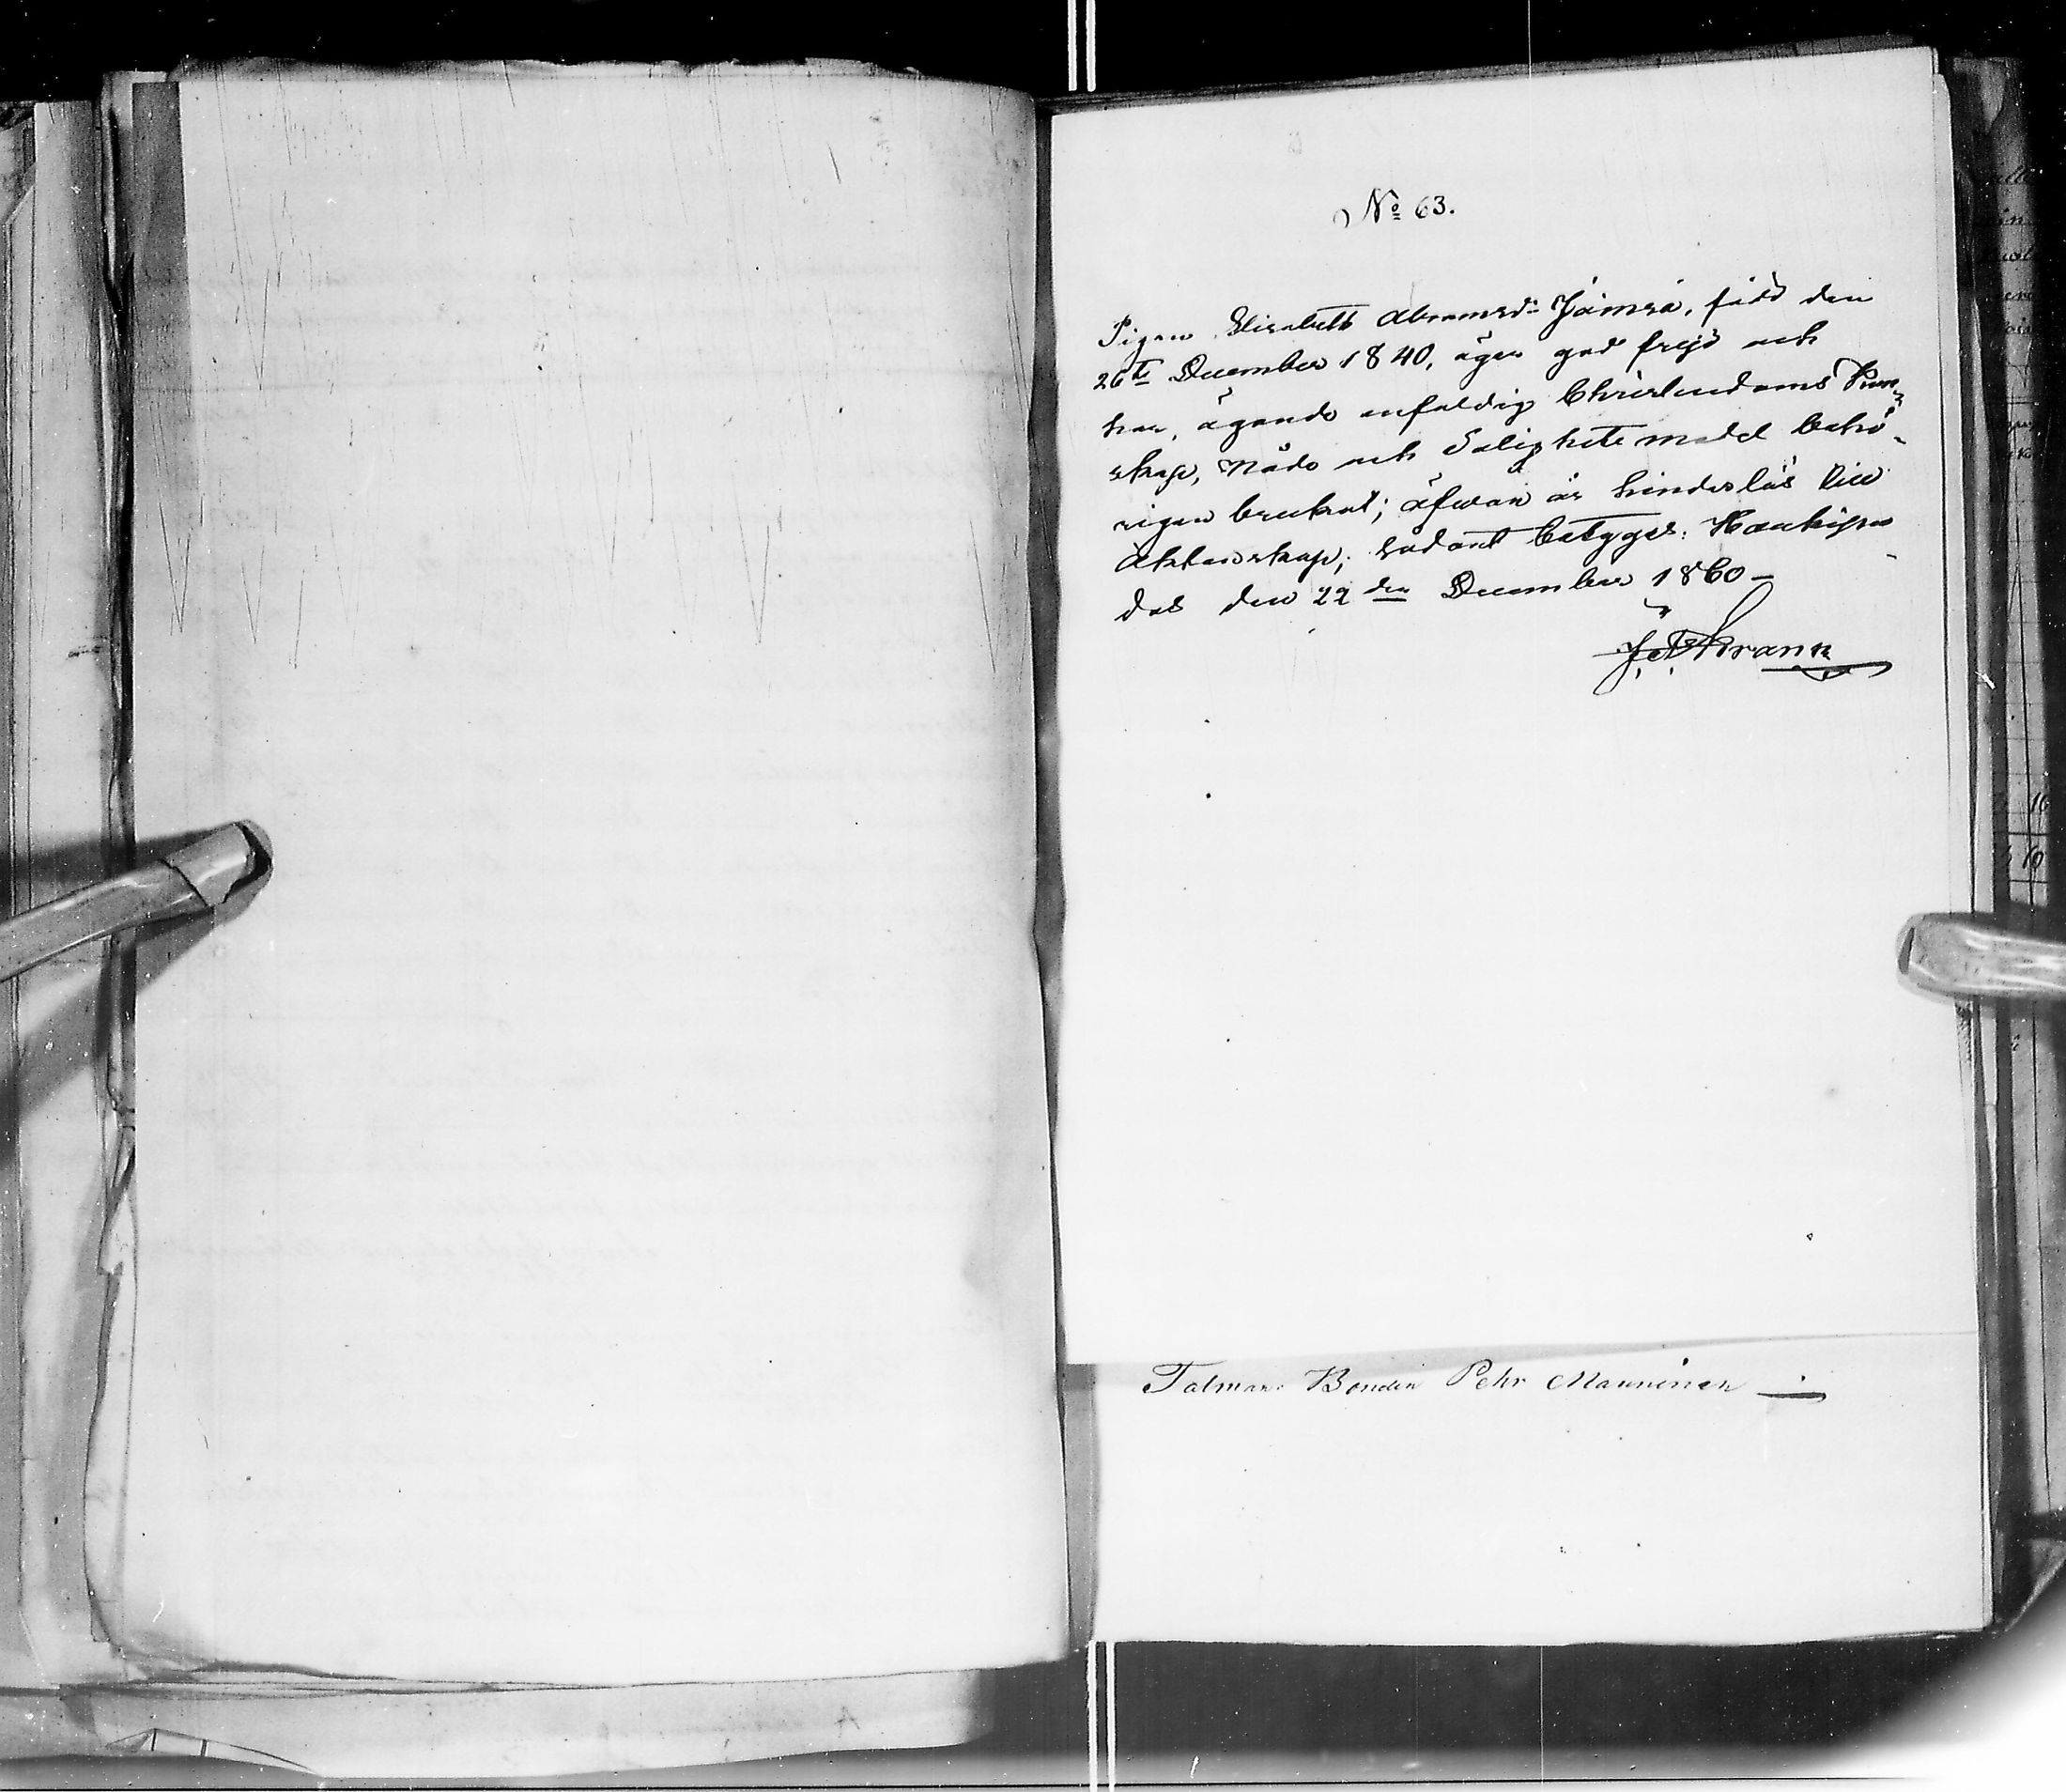 No 63.
Pigan Elisabeth Abramsdr Jämsä, född den
26te December 1840, äger god frejd och
har, ägande enfaldig Christendoms Kun-
skap, Nåde och Salighets medel behö-
rigen brukat; äfwen är hinderlös till
Äktenskap; sådant betygas. Haukipu-
das den 22dra December 1860 —
Frann
Talman: Bonden Pehr Manninen —